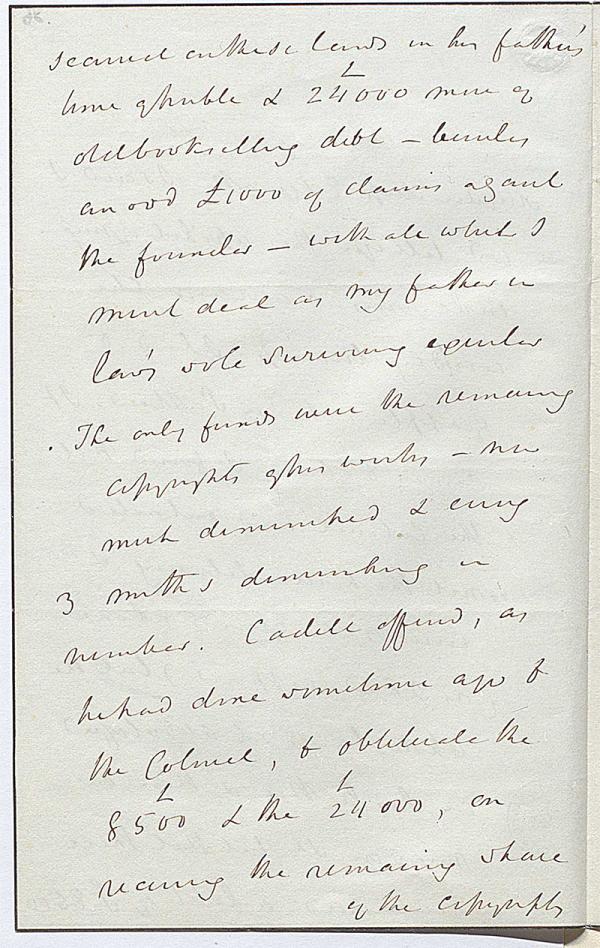 secured on these lands in his father's
time of trouble & £24000 more of
old bookselling debt – besides
an odd £1000 of claims against
the founder – with all which I
must deal as my father in
law's sole surviving executor
. The only funds were the remaining
copyrights of his works – now
much diminished & every
3 months diminishing in
number. Cadell offered, as
he had done sometime ago to
the Colonel, to obliterate the
£8500 & the £24000, on
receiving the remaining share
of the copyrights